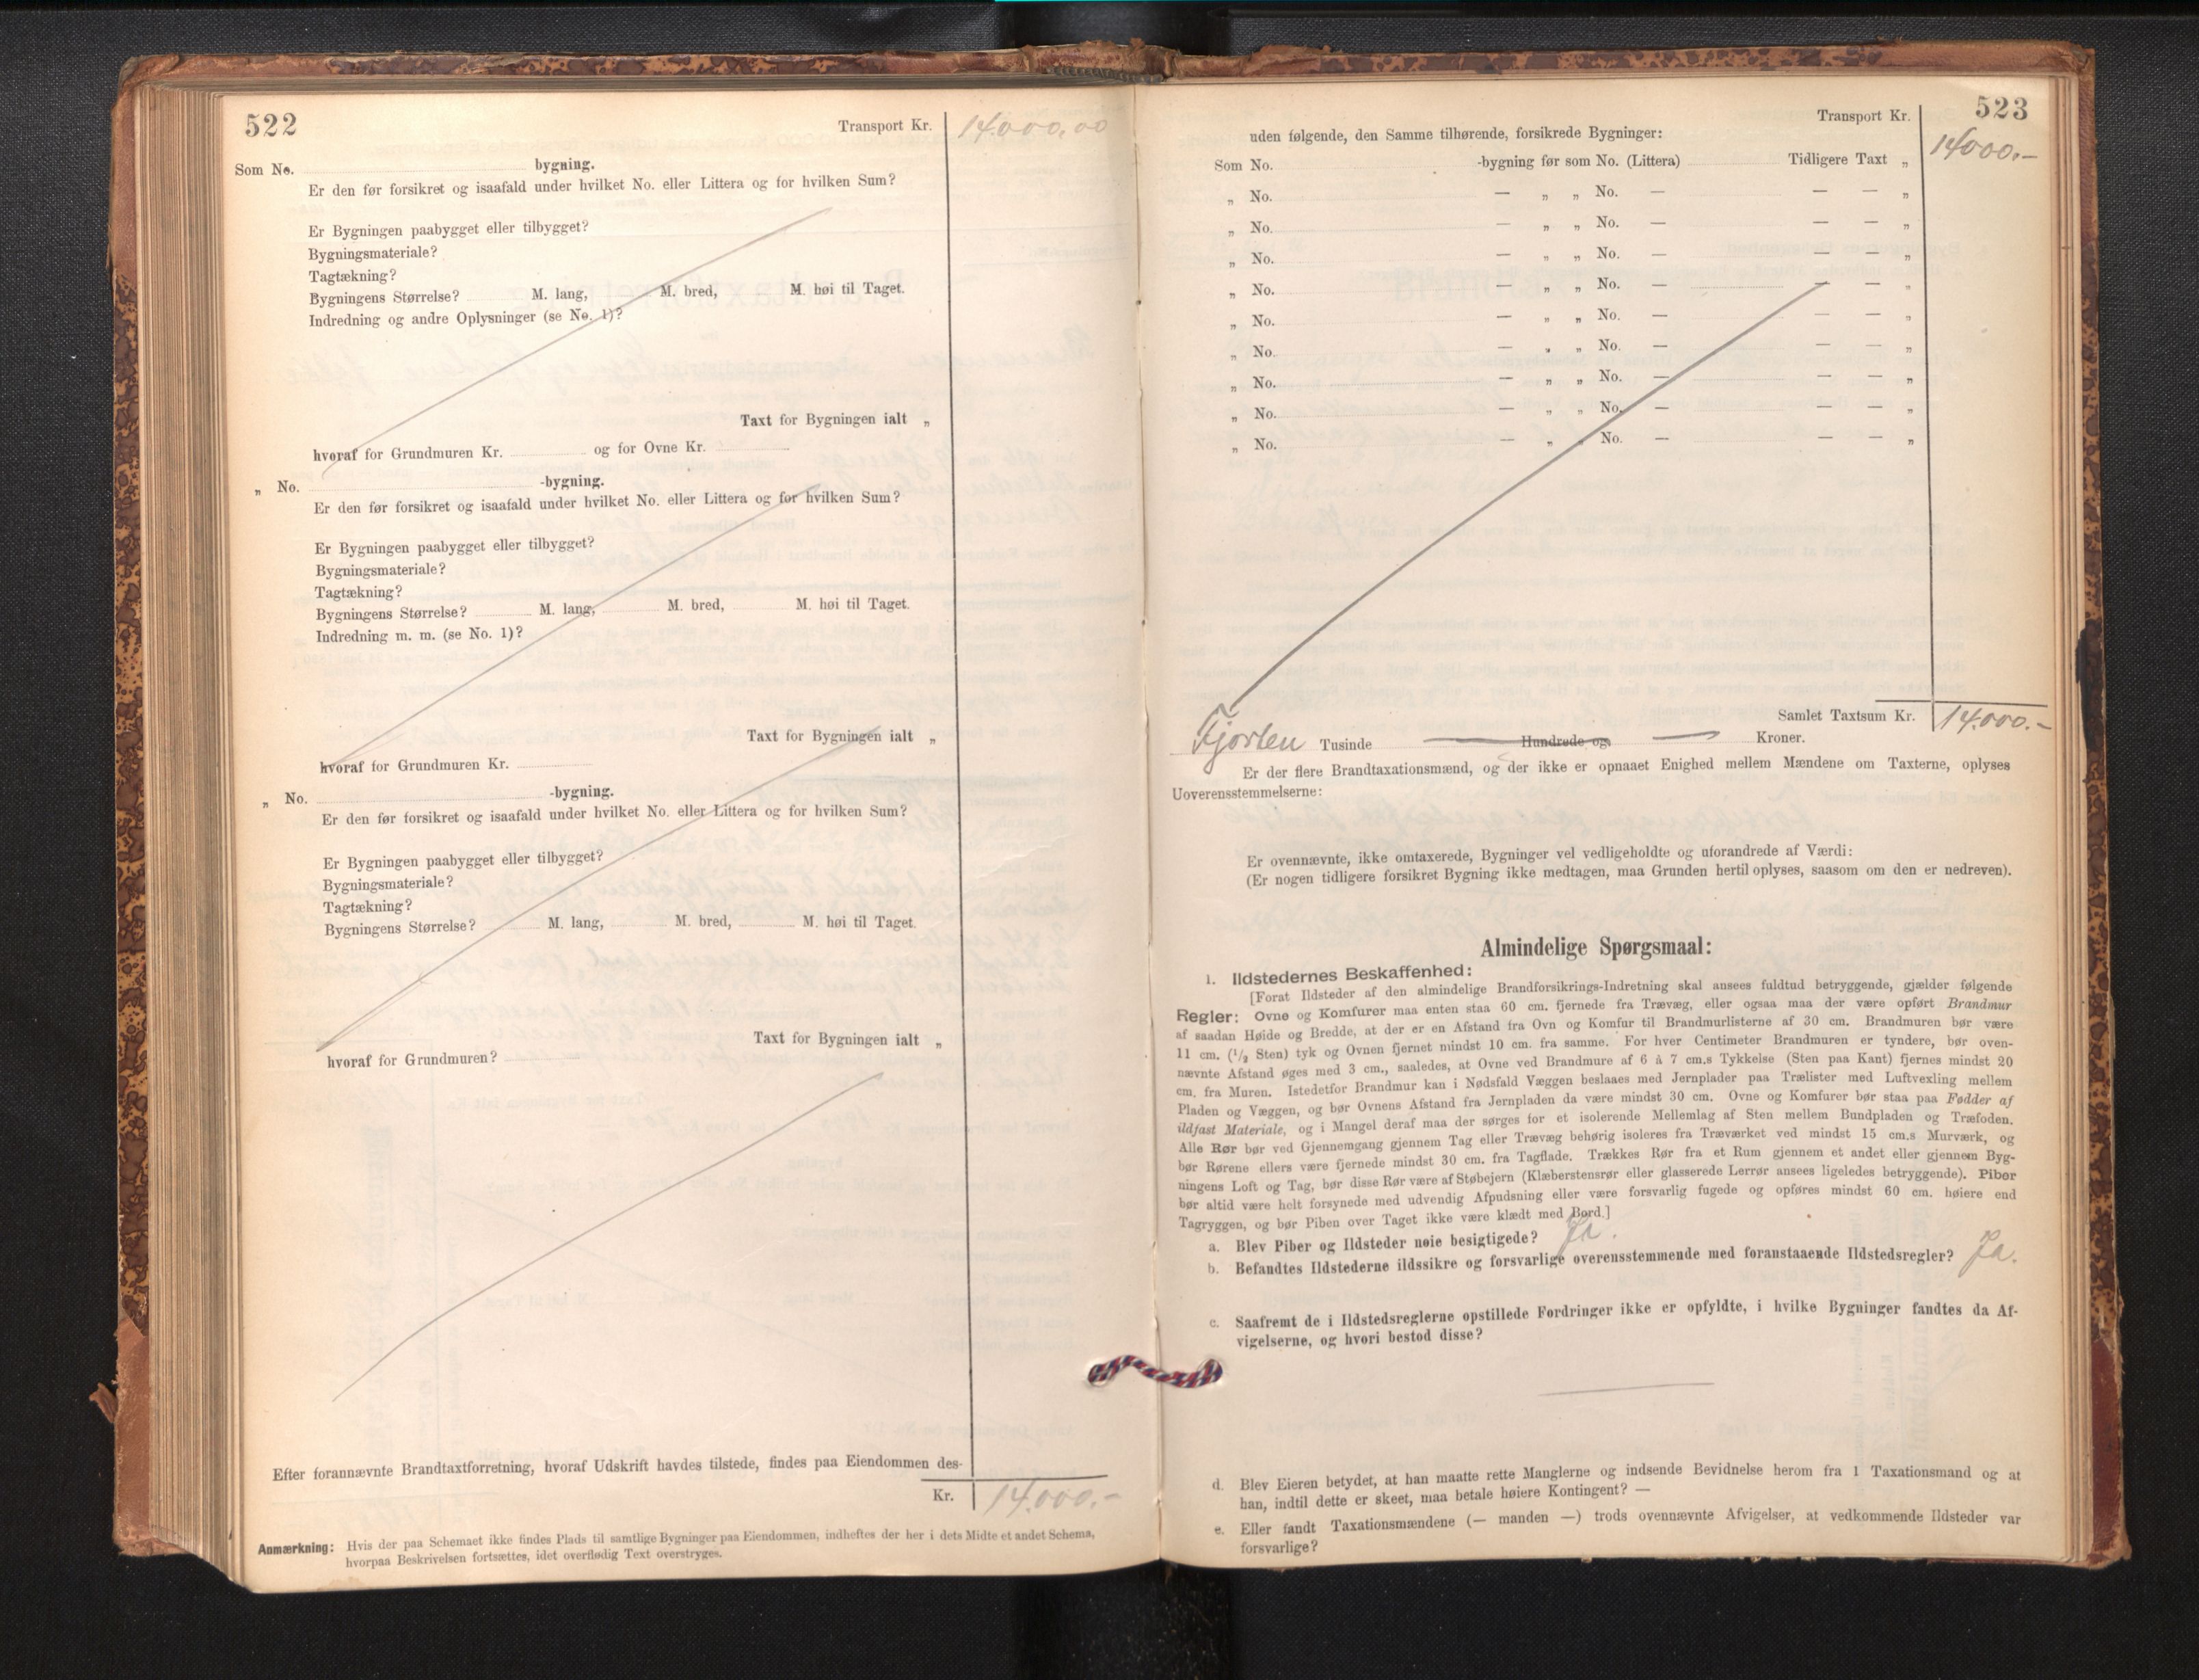 522
Transport Kr. 14.000,00
Som No. bygning.
Er den før forsikret og isaafald under hvilket No. eller Littera og for hvilken Sum?
Er Bygningen paabygget eller tilbygget?
Bygningsmateriale?
Tagtækning?
Bygningens Størrelse? M. lang, M. bred, M. høi til Taget.
Indredning og andre Oplysninger (se No. 1)?
Taxt for Bygningen ialt „
hvoraf for Grundmuren Kr. og for Ovne Kr.
„ No. -bygning.
Er den før forsikret og isaafald under hvilket No. eller Littera og for hvilken Sum?
Er Bygningen paabygget eller tilbygget?
Bygningsmateriale?
Tagtækning?
Bygningens Størrelse? M. lang, M. bred, M. høi til Taget.
Indredning m. m. (se No. 1)?
Taxt for Bygningen ialt „
hvoraf for Grundmuren Kr.
„ No. -bygning.
Er den før forsikret og isaafald under hvilket No. eller Littera og for hvilken Sum?
Er Bygningen paabygget eller tilbygget?
Bygningsmateriale?
Tagtækning?
Bygningens Størrelse? M. lang, M. bred, M. høi til Taget.
Taxt for Bygningen ialt „
hvoraf for Grundmuren?
Efter forannævnte Brandtaxtforretning, hvoraf Udskrift havdes tilstede, findes paa Eiendommen des-
Kr. 14.000.-
Anmærkning: Hvis der paa Schemaet ikke findes Plads til samtlige Bygninger paa Eiendommen, indheftes der her i dets Midte et andet Schema,
hvorpaa Beskrivelsen fortsættes, idet overflødig Text overstryges.
523
Transport Kr.
uden følgende, den Samme tilhørende, forsikrede Bygninger:
14000.-
Som No. -bygning før som No. (Littera) Tidligere Taxt „
„ No. — „ „ No. — — — „
„ No. — „ „ No. — — — „
„ No. — „ „ No. — — — „
„ No. — „ „ No. — — — „
„ No. — „ „ No. — — — „
„ No. — „ „ No. — — — „
„ No. — „ „ No. — — — „
„ No. — „ „ No. — — — „
„ No. — „ „ No. — — — „
Samlet Taxtsum Kr. 14.000.-
Fjorten Tusinde Hundrede og Kroner.
Er der flere Brandtaxationsmænd, og der ikke er opnaaet Enighed mellem Mændene om Taxterne, oplyses
Uoverensstemmelserne:
Er ovennævnte, ikke omtaxerede, Bygninger vel vedligeholdte og uforandrede af Værdi:
(Er nogen tidligere forsikret Bygning ikke medtagen, maa Grunden hertil oplyses, saasom om den er nedreven).
Almindelige Spørgsmaal:
1. Ildstedernes Beskaffenhed:
[Forat Ildsteder af den almindelige Brandforsikrings-Indretning skal ansees fuldtud betryggende, gjælder følgende
Regler: Ovne og Komfurer maa enten staa 60 cm. fjernede fra Trævæg, eller ogsaa maa der være opført Brandmur
af saadan Høide og Bredde, at der er en Afstand fra Ovn og Komfur til Brandmurlisterne af 30 cm. Brandmuren bør være
11 cm. (½ Sten) tyk og Ovnen fjernet mindst 10 cm. fra samme. For hver Centimeter Brandmuren er tyndere, bør oven-
nævnte Afstand øges med 3 cm., saaledes, at Ovne ved Brandmure af 6 à 7 cm.s Tykkelse (Sten paa Kant) fjernes mindst 20
cm. fra Muren. Istedetfor Brandmur kan i Nødsfald Væggen beslaaes med Jernplader paa Trælister med Luftvexling mellem
Pladen og Væggen, og bør Ovnens Afstand fra Jernpladen da være mindst 30 cm. Ovne og Komfurer bør staa paa Fødder af
ildfast Materiale, og i Mangel deraf maa der sørges for et isolerende Mellemlag af Sten mellem Bundpladen og Træfoden.
Alle Rør bør ved Gjennemgang gjennem Tag eller Trævæg behørig isoleres fra Træværket ved mindst 15 cm.s Murværk, og
bør Rørene ellers være fjernede mindst 30 cm. fra Tagflade. Trækkes Rør fra et Rum gjennem et andet eller gjennem Byg-
ningens Loft og Tag, bør disse Rør være af Støbejern (Klæberstensrør eller glasserede Lerrør ansees ligeledes betryggende). Piber
bør altid være helt forsynede med udvendig Afpudsning eller være forsvarlig fugede og opføres mindst 60 cm. høiere end
Tagryggen, og bør Piben over Taget ikke være klædt med Bord.]
a. Blev Piber og Ildsteder nøie besigtigede? Ja.
b. Befandtes Ildstederne ildssikre og forsvarlige overensstemmende med foranstaaende Ildstedsregler? Ja.
c. Saafremt de i Ildstedsreglerne opstillede Fordringer ikke er opfyldte, i hvilke Bygninger fandtes da Af-
vigelserne, og hvori bestod disse?
d. Blev Eieren betydet, at han maatte rette Manglerne og indsende Bevidnelse herom fra 1 Taxationsmand og at
han, indtil dette er skeet, maa betale høiere Kontingent? —
e. Eller fandt Taxationsmændene (— manden —) trods ovennævnte Afvigelser, at vedkommende Ildsteder var
forsvarlige?